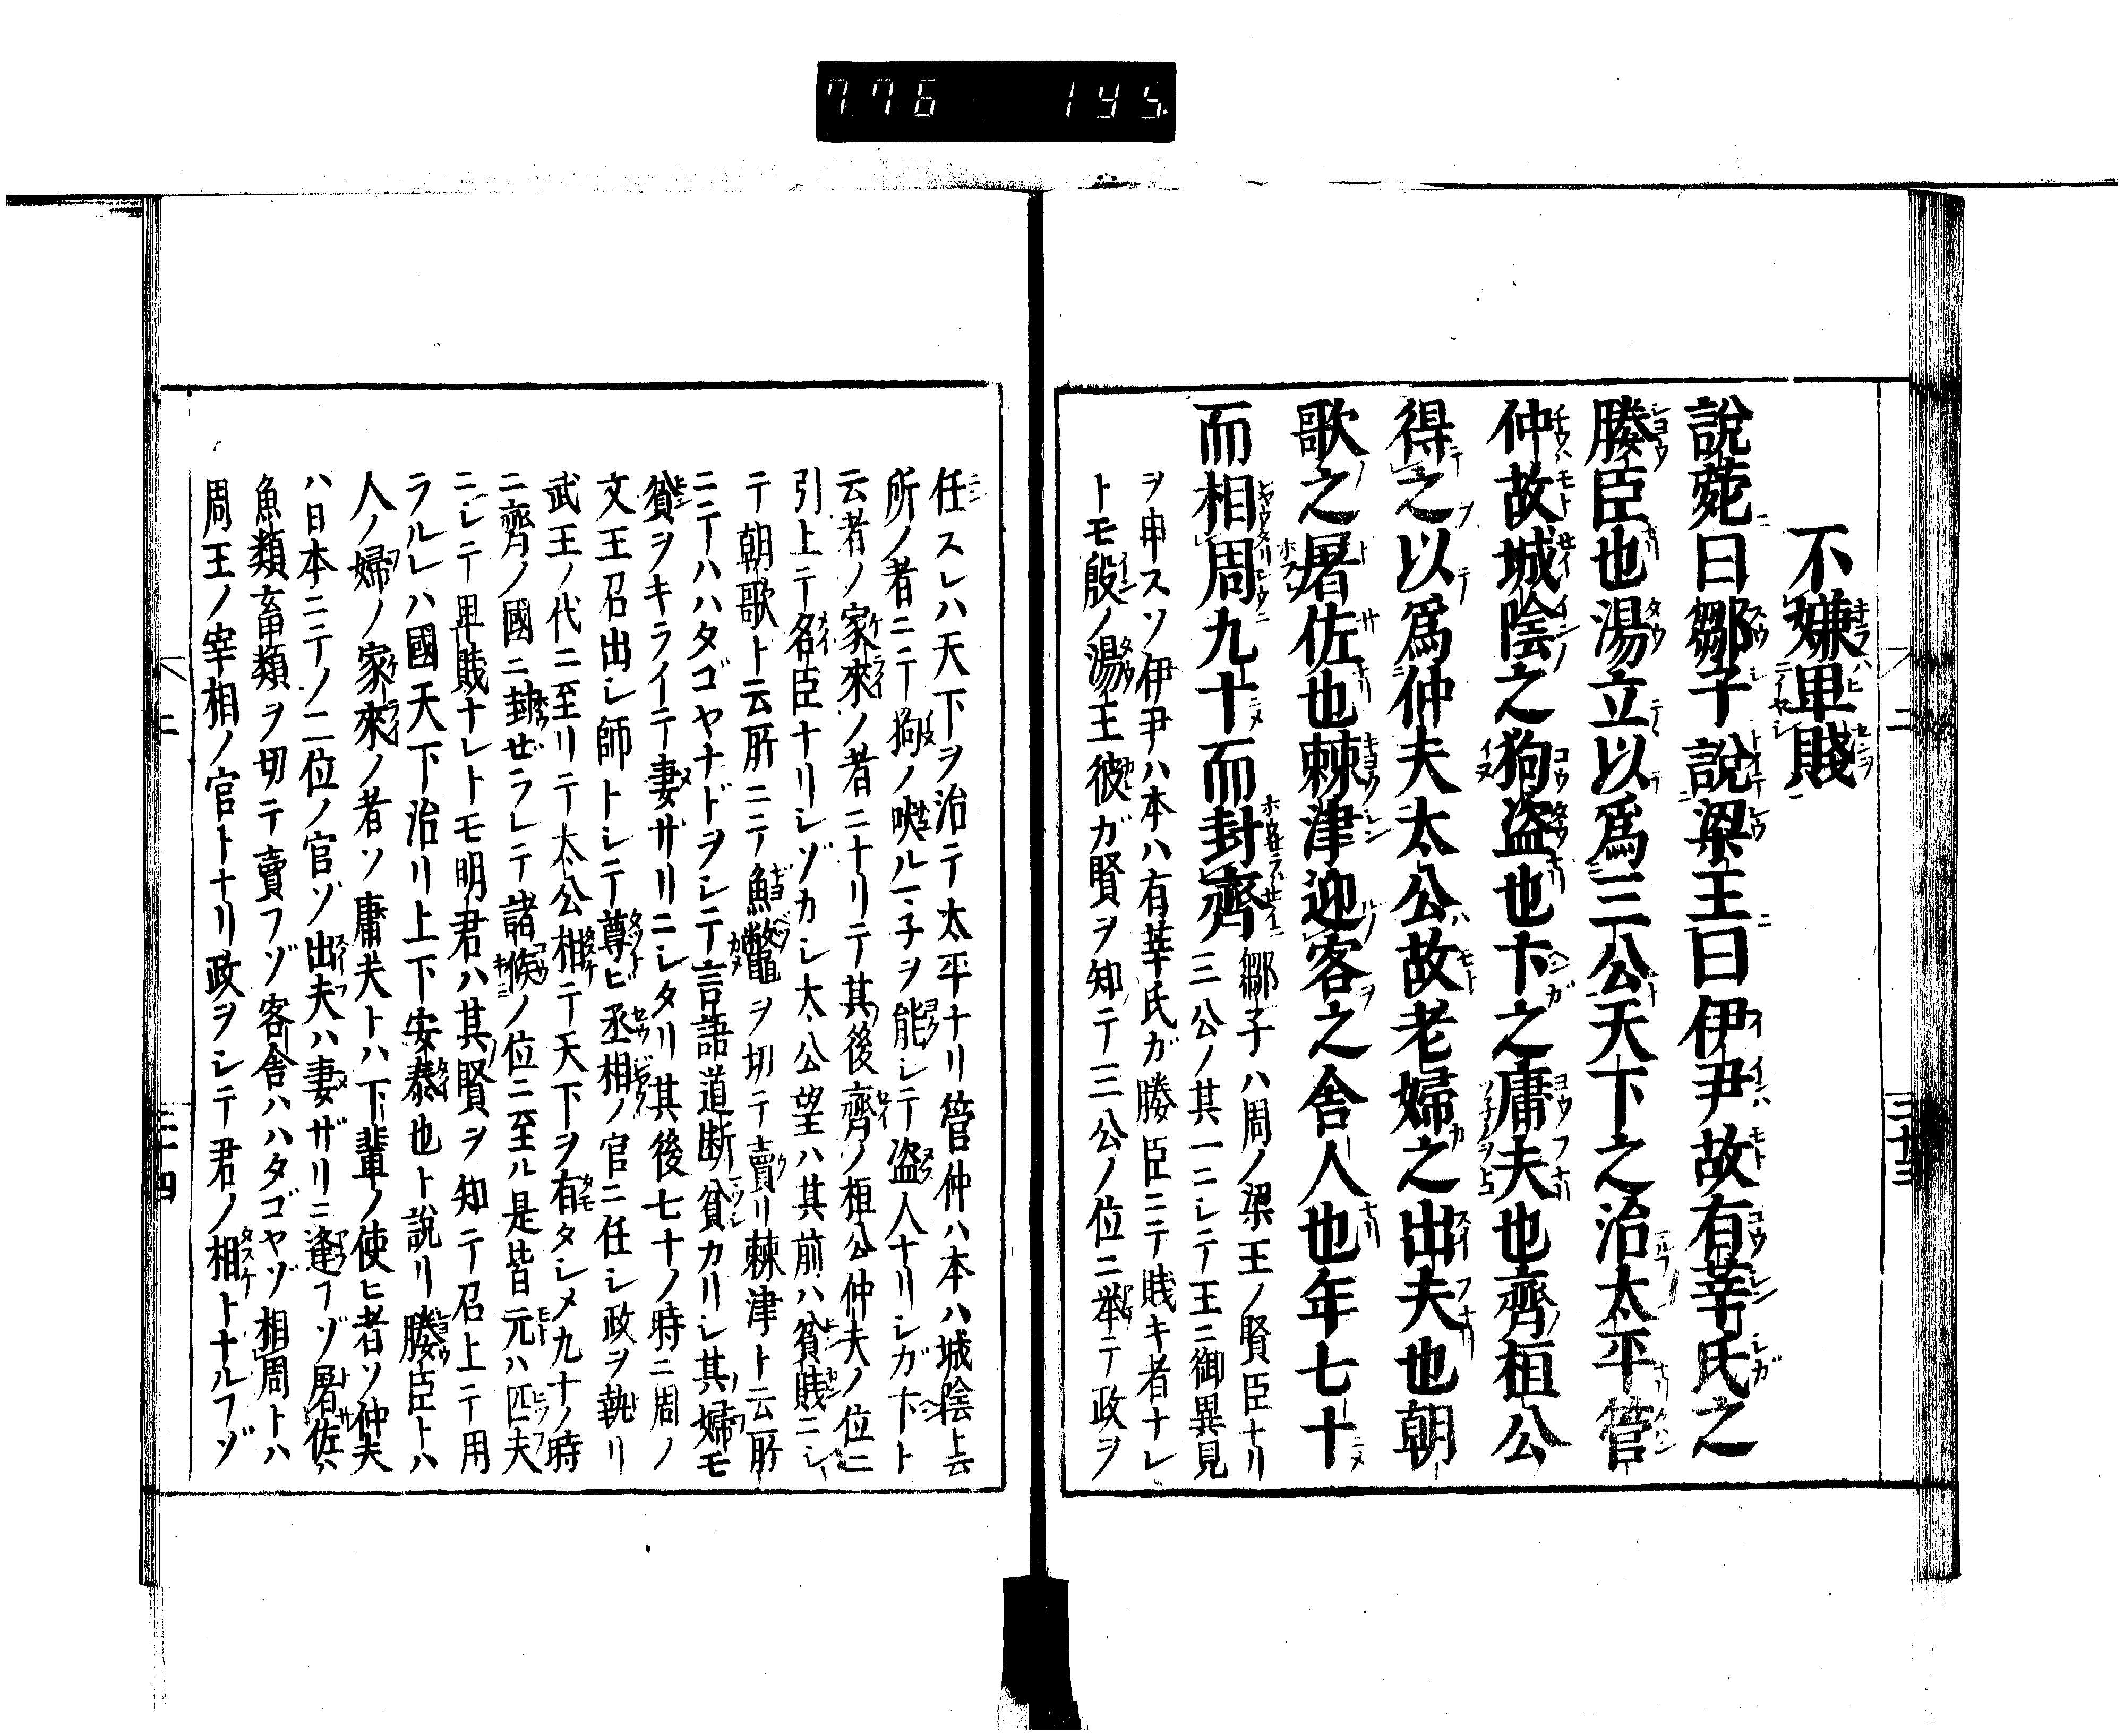 776 145.
不嫌卑賤
說菀曰鄒子說梁王曰伊尹故有莘氏之
媵臣也湯立以爲三公天下之治太平管
仲故城陰之狗盗也卞之庸夫也齊桓公
得之以爲仲夫太公故老婦之出夫也朝
歌之屠佐也棘津迎客之舎人也年七十
而相周九十而封齊 鄒子ハ周ノ梁王ノ賢臣ナリ
三公ノ其一ニシテ王ニ御異見
ヲ申スソ伊尹ハ本ハ有莘氏ガ媵臣ニテ賎キ者ナレ
トモ殷ノ湯王彼ガ賢ヲ知テ三公ノ位ニ挙テ政ヲ
二 三十三
任スレハ天下ヲ治テ太平ナリ管仲ハ本ハ城陰ト云
所ノ者ニテ狗ノ吠ル子ヲ能シテ盗人ナリシガ卞ト
云者ノ家來ノ者ニナリテ其後齊ノ桓公仲夫ノ位ニ
引上テ名臣ナリシゾカシ太公望ハ其前ハ貧賎ニシ
テ朝歌ト云所ニテ魚鼈ヲ切テ賣リ棘津ト云所
ニテハハタゴヤナドヲシテ言語道断貧カリシ其婦モ
貧ヲキライテ妻ザリニシタリ其後七十ノ時ニ周ノ
文王召出シ師トシテ尊ヒ丞相ノ官ニ任シ政ヲ執リ
武王ノ代ニ至リテ太公相テ天下ヲ有タシメ九十ノ時
ニ齊ノ國ニ封ぜラレテ諸候ノ位ニ至ル是皆元ハ匹夫
ニシテ卑賎ナレトモ明君ハ其賢ヲ知テ召上テ用
ラルレハ國天下治リ上下安泰也ト說リ媵臣トハ
人ノ婦ノ家來ノ者ソ庸夫トハ下輩ノ使ヒ者ソ仲夫
ハ日本ニテノ二位ノ官ゾ出夫ハ妻ザリニ逢フゾ屠佐ハ
魚類畜類ヲ切テ賣フゾ客舎ハハタゴヤゾ相周トハ
周王ノ宰相ノ官トナリ政ヲシテ君ノ相トナルフゾ
二 三十四